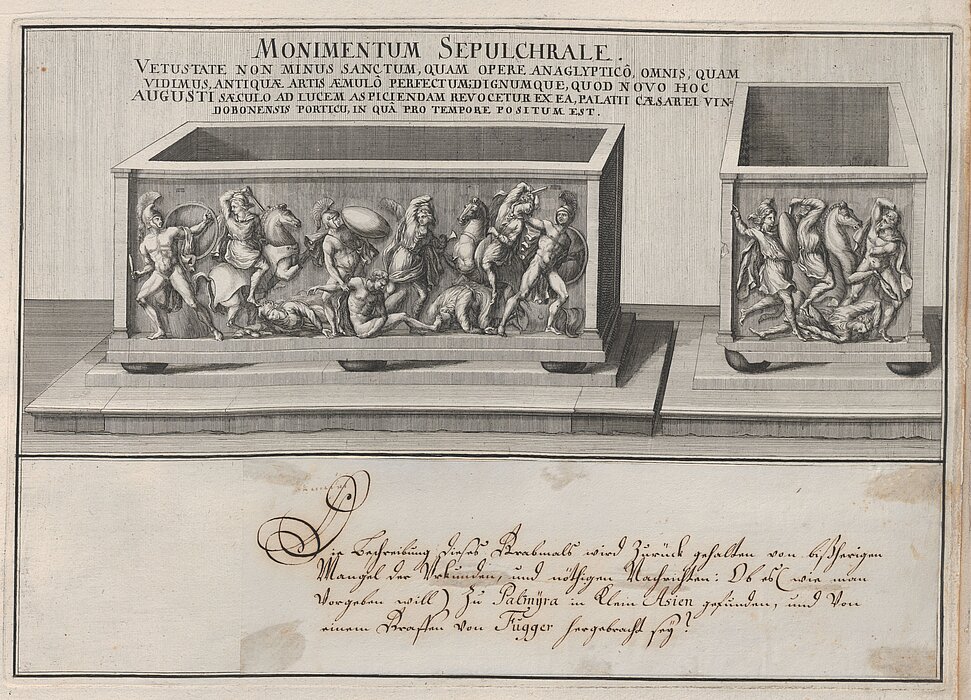 MONIMENTUM SEPULCHRALE.
VETUSTATE NON MINUS SANCTUM, QUAM OPERE ANAGLYPTICÔ, OMNIS, QUAM
VIDIMUS, ANTIQUÆ ARTIS ÆMULÔ PERFECTUM; DIGNUMQUE, QUOD NOVO HOC
AUGUSTI SÆCULO AD LUCEM ASPICIENDAM REVOCETUR EX EA, PALATII CÆSAREI VIN-
DOBONENSIS PORTICU, IN QUÂ PRO TEMPORE POSITUM EST.
Die Bechreibung dieses Grabmals wird Zurück gehalten von bißherigen
Mangel der Urkunden, und nöthigen Nachrichten: Ob es (wie man
Vorgeben will) Zu Palmÿra in Klein Asien gefunden, und Von
einem Graffen von Fugger hergebracht seÿ?